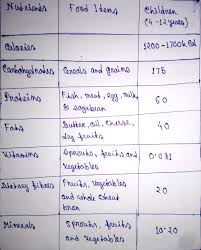 Nutrients Food Items Children
(4-12 years)
Calories 1200-1700k.Cal
Carbohydrates Cereals and grains 175
Proteins Fish, meat, egg, milk, 40
& soyabean
Fats Butter, oil, cheese, 60
dry fruits
Vitamins Sprouts, fruits and 0.031
vegetables
Dietary fibres Fruits, Vegetables 20
and whole wheat
bran
Minerals Sprouts, fruits 10-20
and vegetables